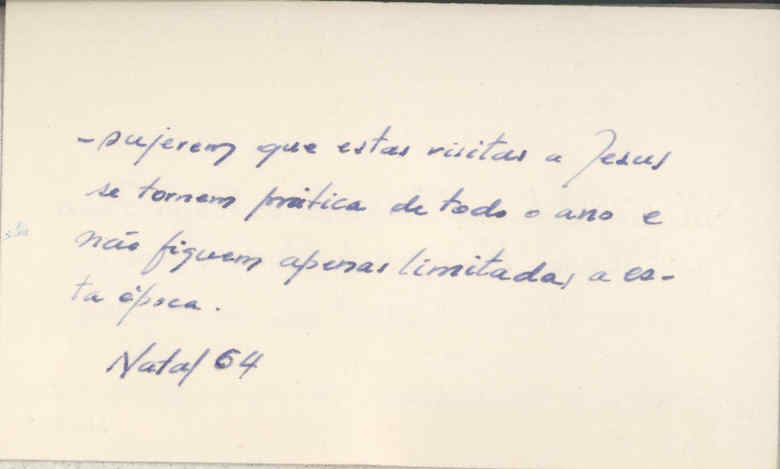 - sujerem que estas visitas a Jesus
se tornem prática de todo o ano e
não fiquem apenas limitadas a es-
ta época.
Natal 64